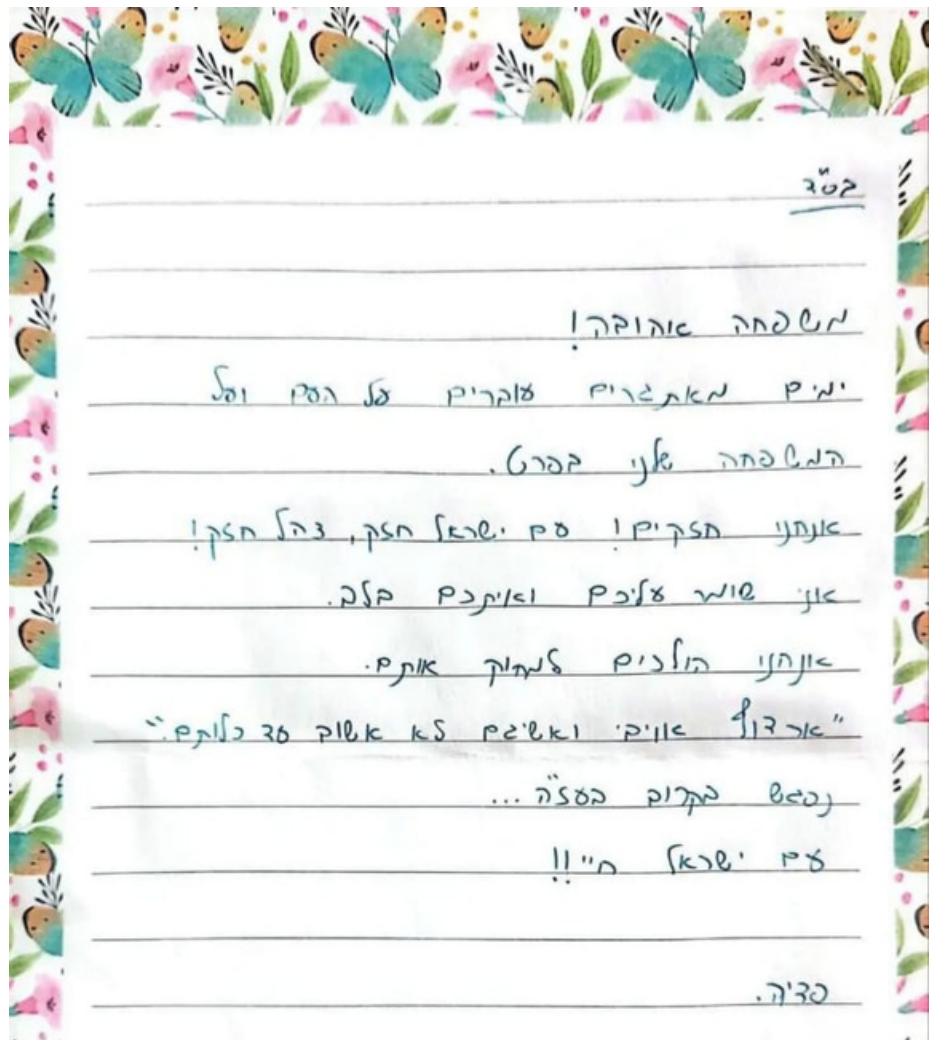 בס"ד
משפחה אהובה!
ימים מאתגרים עוברים על העם ועל
המשפחה שלנו בפרט.
אנחנו חזקים! עם ישראל חזק, צהל חזק!
אני שומר עליכם ואיתכם בלב.
אנחנו הולכים למחוק אותם.
"ארדוף אויבי ואשיגם לא אשוב עד כלותם."
נפגש בקרוב בעז"ה...
עם ישראל חיי!!
פדיה.